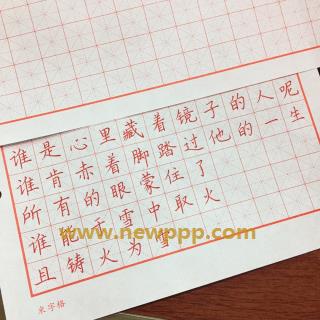 谁是心里藏着镜子的人呢
谁肯赤着脚踏过他的一生
所有的眼蒙住了
谁能于雪中取火
且铸火为雪
www.newppp.com
米字格